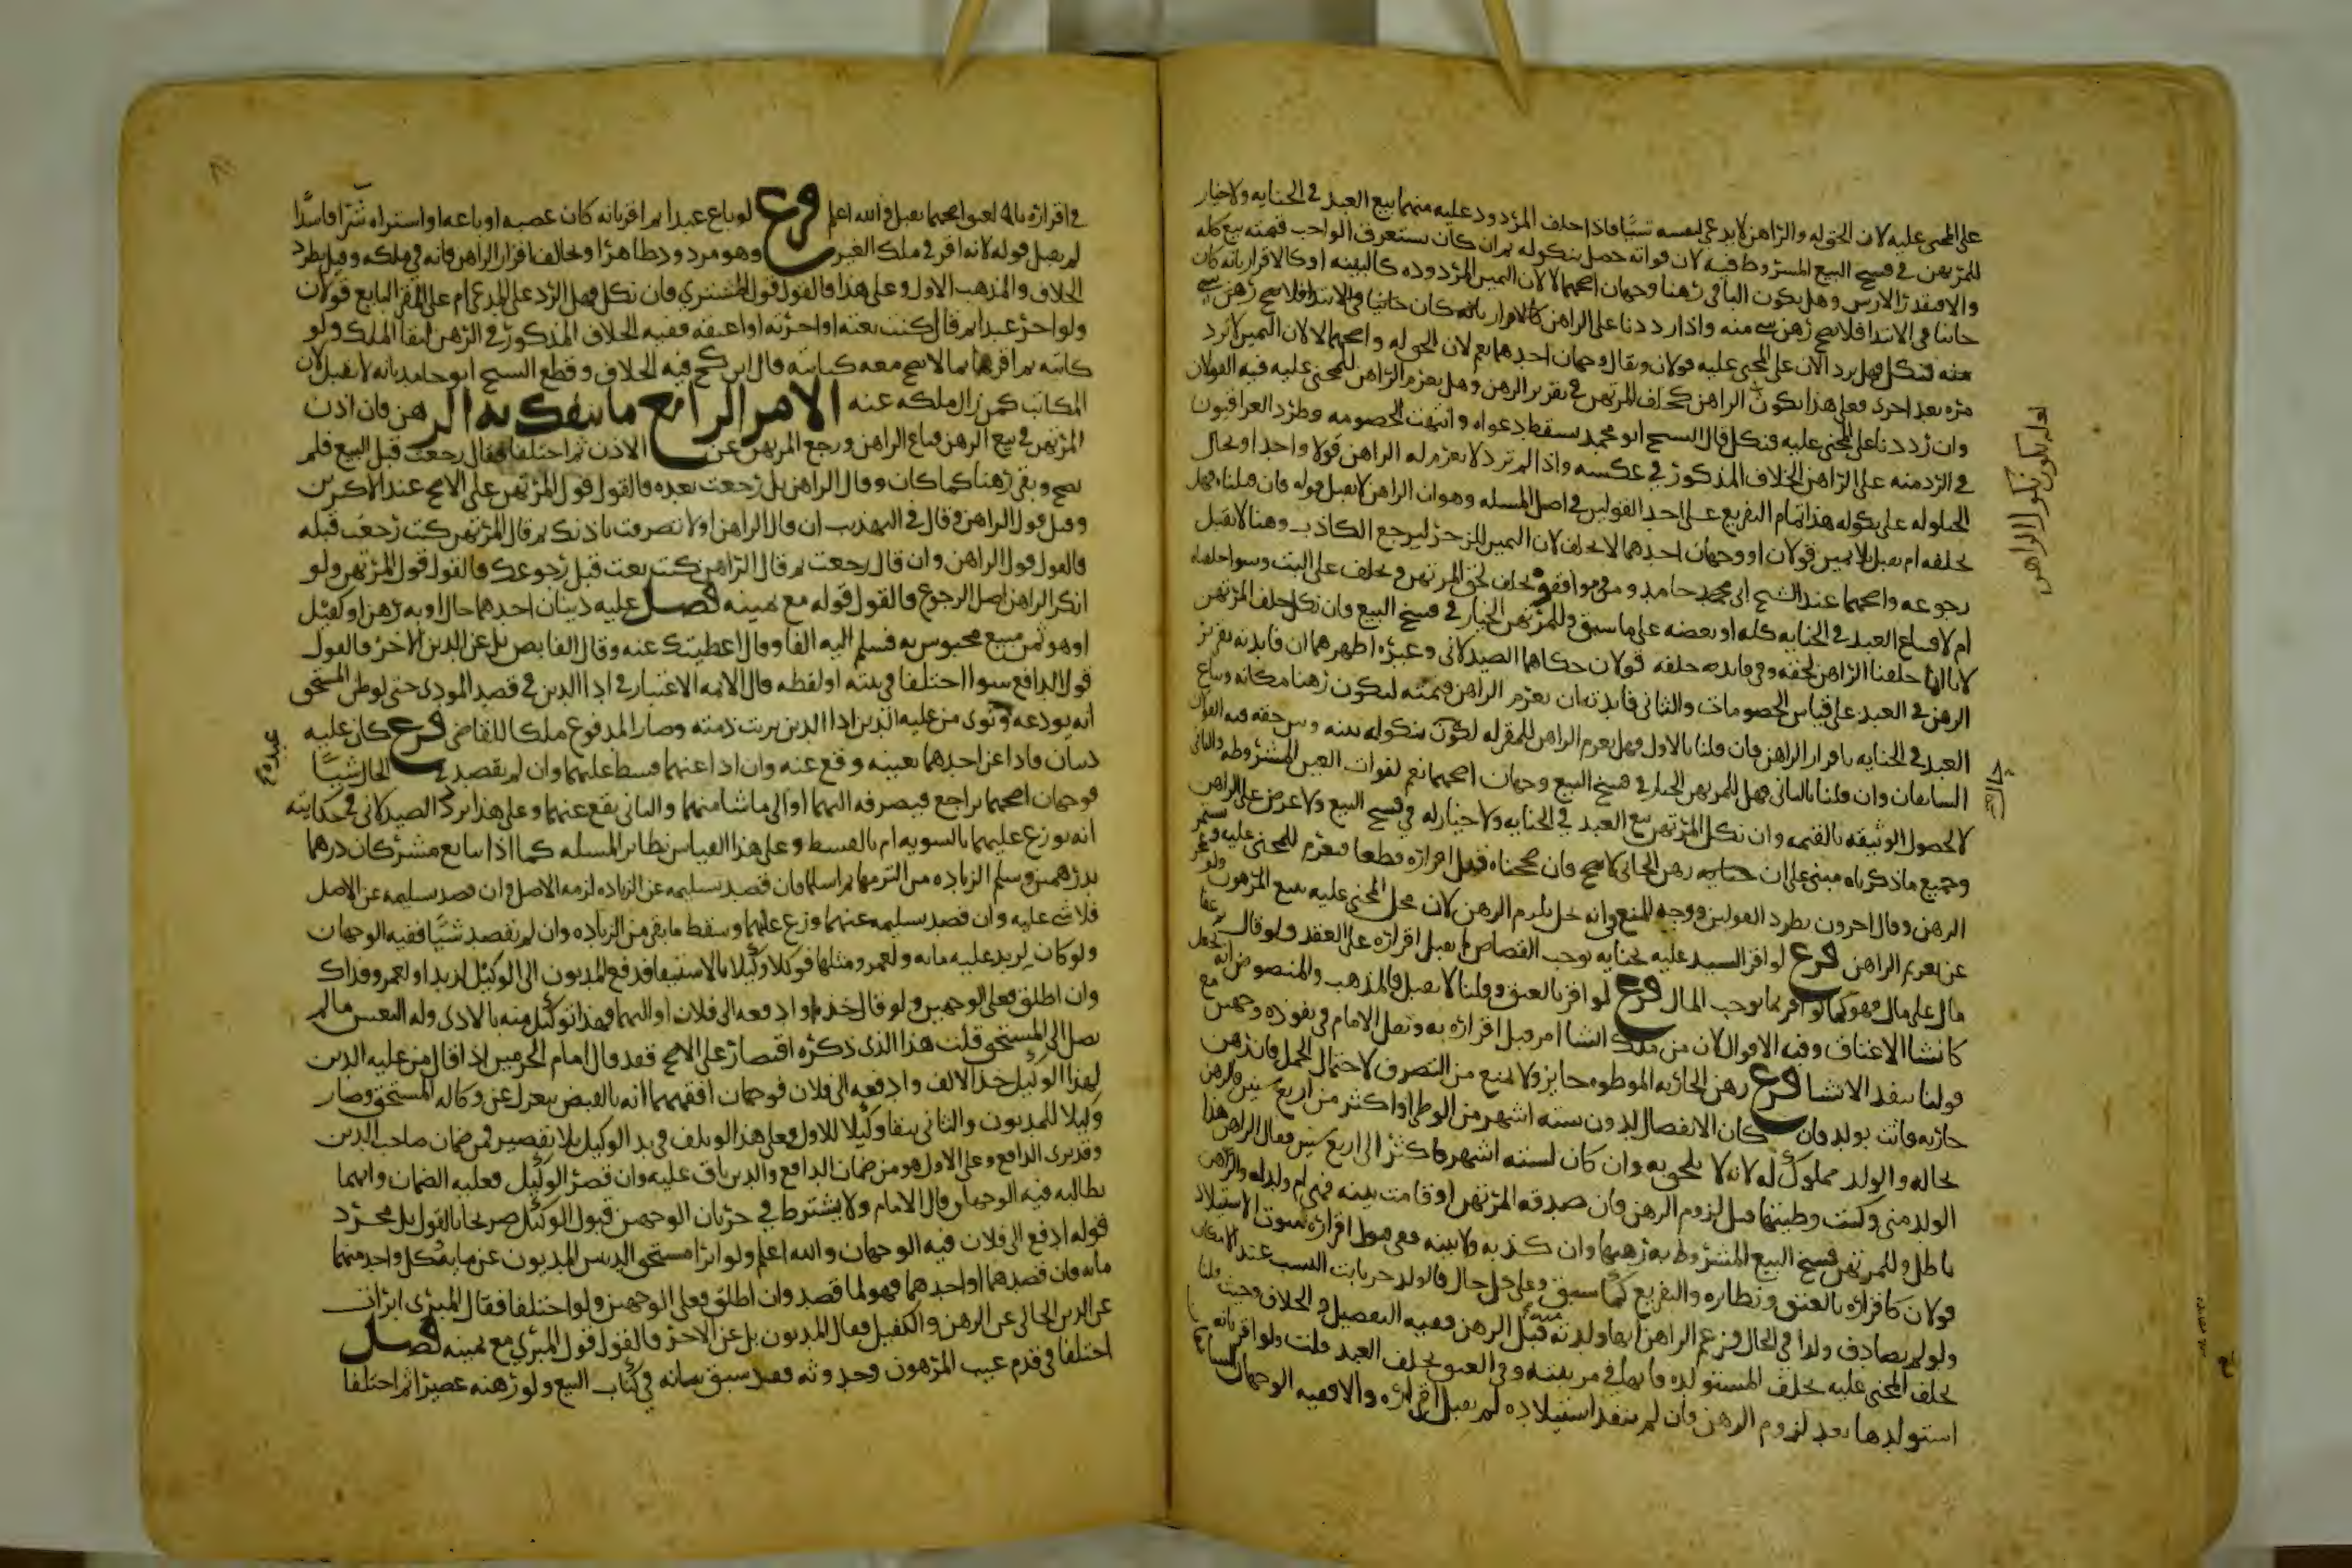 على المجنى عليه لان الحق له والراهن لا يدعى لنفسه شيئا فاذا حلف المردود عليه منهما بيع العبد في الجنايه ولا خيار
للمرتهن في فسخ البيع المشروط فيه لان فواته حصل بنكوله ثم ان كان يستغرق الواجب قيمته بيع كله
والا فبقدر الارش وهل يكون الباقي رهنا وجهان اصحهما لا لان اليمين المردوده كالبينه او كالاقرار بانه كان
جانيا في الابتدا فلا يصح رهن شي منه واذا رددنا على الراهن
فنكل فهل يرد الان على المجنى عليه قولان ويقال وجهان احدهما نعم لان الحق له واصحهما لا لان اليمين لا ترد
مره بعد اخرى فعلى هذا نكول الراهن كحلف المرتهن في تقرير الرهن وهل يغرم الراهن للمجنى عليه فيه القولان
وان رددنا على المجنى عليه فنكل قال الشيخ ابو محمد تسقط دعواه وانتهت الخصومه وطرد العراقيون
في الرد منه على الراهن الخلاف المذكور في عكسه واذا لم ترد لا يغرم له الراهن قولا واحدا وتحال
الحيلوله على نكوله هذا تمام التفريع على احد القولين في اصل المسله وهو ان الراهن لا يقبل قوله فان قبلناه فهل
يحلفه ام يقبل بلا يمين قولان او وجهان احدهما لا يحلف لان اليمين للزجر ليرجع الكاذب وهنا لا يقبل
رجوعه واصحهما عند الشيخ ابى حامد ومن وافقه يحلف لحق المرتهن ويحلف على البت وسوا حلفناه
ام لا فيباع العبد في الجنايه كله او بعضه على ما سبق وللمرتهن الخيار في فسخ البيع وان نكل حلف المرتهن
لانا انما حلفنا الراهن لحقه وفي فايده حلفه قولان حكاهما الصيدلاني وغيره اظهرهما ان فايدته تقرير
الرهن في العبد على قياس الخصومات والثاني فايدته ان يغرم الراهن قيمته ليكون رهنا مكانه ويباع
العبد في الجنايه باقرار الراهن فان قلنا بالاول فهل يغرم الراهن للمقر له لكونه بنكوله بينه وبين حقه فيه القولان
السابقان وان قلنا بالثاني فهل للمرتهن الخيار في فسخ البيع وجهان اصحهما نعم لفوات العين المشروطه والثاني
لا لحصول الوثيقه بالقيمه وان نكل المرتهن بيع العبد في الجنايه ولا خيار له في فسخ البيع ولا غرم على الراهن
وجميع ما ذكرناه مبنى على ان رهن الجاني لا يصح فان صححناه فقبل اقراره قطعا فيغرم للمجنى عليه ويستمر
الرهن وقال اخرون بطرد القولين ووجه المنع انه يحل بلزوم الرهن لان محل المجنى عليه بيع المرهون ولو عجز
عن تغريم الراهن فرع لو اقر السيد عليه بجنايه توجب القصاص لم يقبل اقراره على العبد ولو قال ثم عفا
مال على مال فهو كما لو اقر بما يوجب المال فرع لو اقر بالعتق وقلنا لا يقبل فالمذهب والمنصوص انه يجعل
كانشا الاعتاق وفيه الاقوال لان من ملك انشا امر قبل اقراره به ونقل الامام في نفوذه وجهين مع
قولنا ينفذ الانشا فرع رهن الجاريه الموطوه جايز ولا يمنع من التصرف لاحتمال الحمل فاذا رهن
جاريه فاتت بولد فان كان الانفصال لدون سته اشهر من الوطى او اكثر من اربع سنين فالرهن
بحاله والولد مملوك له لانه لا يلحق به وان كان لسته اشهر فاكثر الى اربع سنين فقال الراهن هذا
الولد مني وكنت وطيتها قبل لزوم الرهن فان صدقه المرتهن او قامت بينه فهي ام ولد له والرهن
باطل وللمرتهن فسخ البيع المشروط به رهنها وان كذبه ولا بينه ففي قبول اقراره لثبوت الاستيلاد
قولان كاقراره بالعتق ونظايره والتفريع كما سبق وعلى كل حال فالولد حر ثابت النسب عند الامكان
ولو لم يصادف ولدا في الحال فزعم الراهن انها ولدته منه قبل الرهن ففيه التفصيل والخلاف وحيث قلنا
يحلف المجنى عليه يحلف المستولده فانها في مرتبته وفي العتق يحلف العبد قلت ولو اقر بانه
استولدها بعد لزوم الرهن فان لم ينفذ استيلاده لم يقبل اقراره والا ففيه الوجهان السابقان
اما بكون نكول الراهن
في اقراره بانه اعتق اصحهما يقبل والله اعلم فرع لو باع عبدا ثم اقر بانه كان غصبه او باعه او اشتراه شرا فاسدا
لم يقبل قوله لانه اقر في ملك الغير وهو مردود ظاهرا ويخالف اقرار الراهن فانه في ملكه وقيل بطرد
الخلاف والمذهب الاول وعلى هذا فالقول قول المشتري فان نكل فهل الرد على المدعى ام على المقر البايع قولان
ولو اجر عبدا ثم قال كنت بعته او اجرته او اعتقته ففيه الخلاف المذكور في الرهن لبقا الملك ولو
كاتبه ثم اقر بما لا يصح معه كتابته قال ابن كج فيه الخلاف وقطع الشيخ ابو حامد بانه لا يقبل لان
المكاتب كمن زال ملكه عنه الامر الرابع ما ينفك به الرهن فان اذن
المرتهن في بيع الرهن فباع الراهن ورجع المرتهن عن الاذن ثم اختلفا فقال رجعت قبل البيع فلم
يصح وبقي رهنا كما كان وقال الراهن بل رجعت بعده فالقول قول المرتهن على الاصح عند الاكثرين
وقيل قول الراهن وقال في التهذيب ان قال الراهن اولا تصرفت باذنك ثم قال المرتهن كنت رجعت قبله
فالقول قول الراهن وان قال رجعت ثم قال الراهن كنت بعت قبل رجوعك فالقول قول المرتهن ولو
انكر الراهن اصل الرجوع فالقول قوله مع يمينه فصل عليه دينان احدهما حال او به رهن او كفيل
او هو ثمن مبيع محبوس به فسلم اليه الفا وقال اعطيتك عنه وقال القابض بل عن الدين الاخر فالقول
قول الدافع سوا اختلفا في نيته او لفظه قال الايمه الاعتبار في ادا الدين في قصد المودى حتى لو ظن المستحق
انه يودعه ونوى من عليه الدين ادا الدين بريت ذمته وصار المدفوع ملكا للقابض فرع كان عليه
دينان فادا عن احدهما بعينه وقع عنه وان ادا عنهما قسط عليهما وان لم يقصد في الحال شيا
فوجهان اصحهما يراجع فيصرفه اليهما او الى ما شا منهما والثاني يقع عنهما وعلى هذا تردد الصيدلاني في حكايته
انه يوزع عليهما بالسويه ام بالقسط وعلى هذا القياس نظاير المسله كما اذا تبايع مشركان درهما
بدرهمين وسلم الزياده من التزمها ثم اسلما فان قصد تسليمه عن الزياده لزمه الاصل وان قصد تسليمه عن الاصل
فلا شي عليه وان قصد تسليمه عنهما وزع عليهما وسقط ما بقي من الزياده وان لم يقصد شيا ففيه الوجهان
ولو كان لزيد عليه مايه ولعمرو مثلها فوكلا وكيلا بالاستيفا فدفع المديون الى الوكيل لزيد او لعمرو فذاك
وان اطلق فعلى الوجهين ولو قال خذه او ادفعه الى فلان او اليهما فهذا توكيل منه بالادى وله التعيين ما لم
يصل الى المستحق قلت هذا الذي ذكره اقتصار على الاصح فقد قال امام الحرمين اذا قال من عليه الدين
لهذا الوكيل خذ الالف وادفعه الى فلان فوجهان افقههما انه بالقبض ينعزل عن وكاله المستحق وصار
وكيلا للمديون والثاني يبقا وكيلا للاول فعلى هذا لو تلف في يد الوكيل بلا تقصير فمن ضمان صاحب الدين
وقد برى الدافع وعلى الاول هو من ضمان الدافع والدين باق عليه وان قصر الوكيل فعليه الضمان وايهما
يطالبه فيه الوجهان قال الامام ولا يشترط في جريان الوجهين قبول الوكيل صريحا بالقول بل مجرد
قوله ادفع الى فلان فيه الوجهان والله اعلم ولو ابرا مستحق الدينين المديون عن مايه وكل واحد منهما
مايه فان قصدهما او احدهما فهو لما قصد وان اطلق فعلى الوجهين ولو اختلفا فقال المبرى ابرات
عن الدين الخالي عن الرهن والكفيل فقال المديون بل عن الاخر فالقول قول المبري مع يمينه فصل
اختلفا في قدم عيب المرهون وحدوثه فقد سبق بيانه في كتاب البيع ولو رهنه عصيرا ثم اختلفا